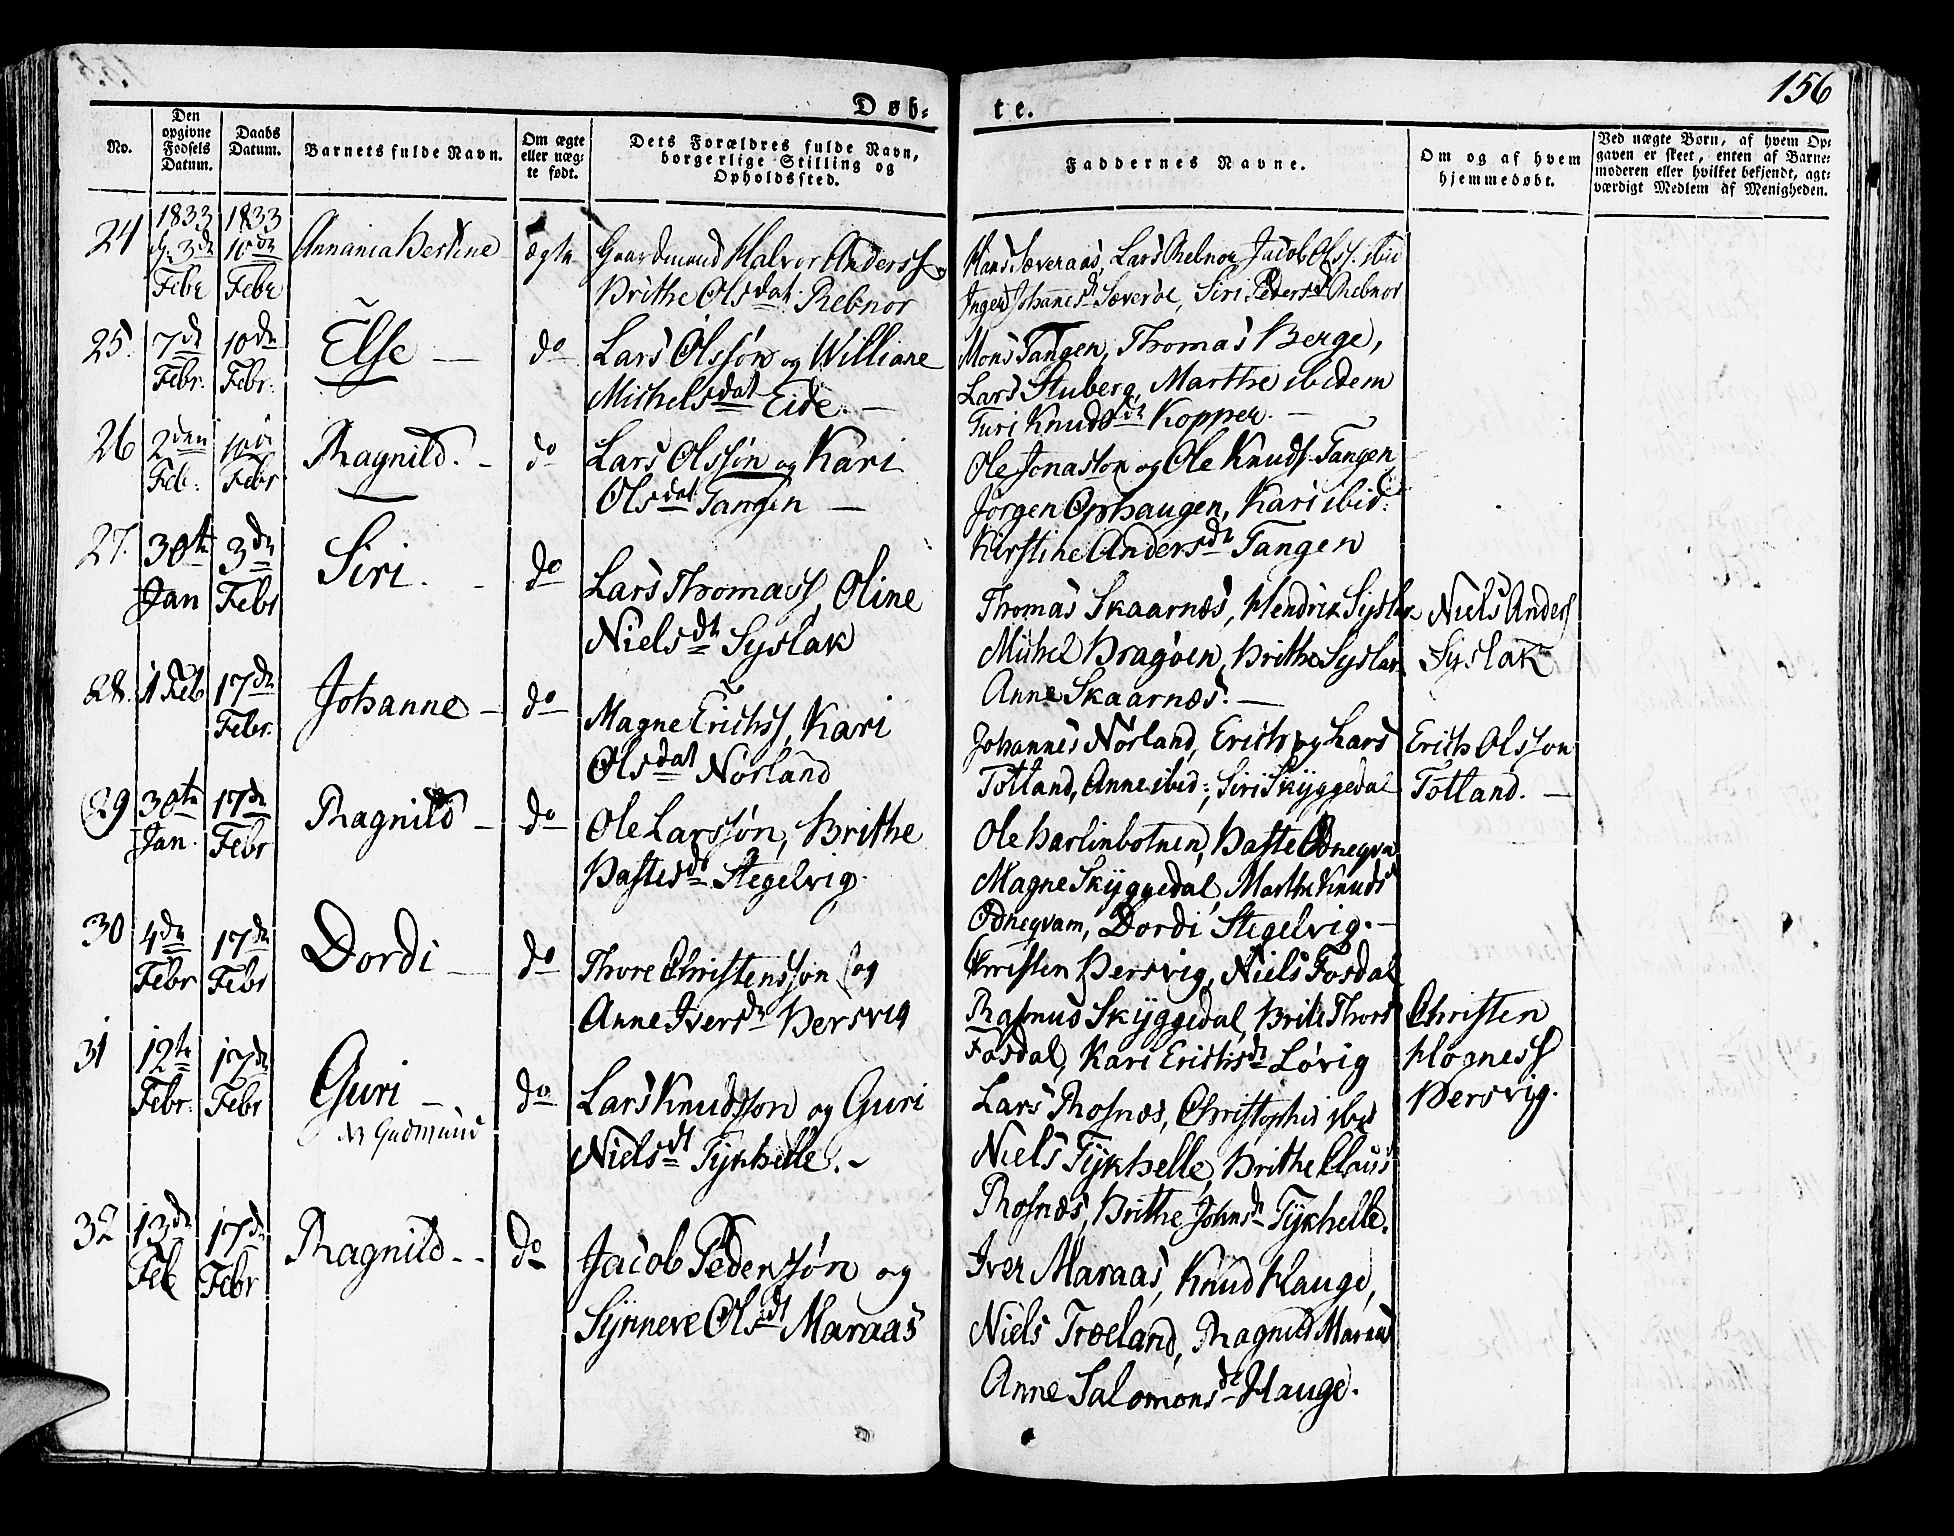 156
Døb-
te.
No.
Den opgivne Fødsels Datum.
Daabs Datum.
Barnets fulde Navn.
Om ægte eller uægte født.
Dets Forældres fulde Navn, borgerlige Stilling og Opholdssted.
Faddernes Navne.
Om og af hvem hjemmedøbt.
Ved uægte Børn, af hvem Opgaven er skeet, enten af Barnemoderen eller hvilket bekjendt, agtværdigt Medlem af Menigheden.
24
1833 3dn Febr
1833 10dn Febr
Annania Bertine
ægte
Gaardmand Halvor Anderss og
Brithe Olsdat: Rebnor
Hans Sæveraas, Lars Rebnor, Jacob Olss: ibid
Inger Johannesd Severøe, Siri Pedersd Rebnor
25.
7de Febr.
10dn Febr.
Else —
do
Lars Olssøn og Williane
Michelsdat Eide. —
Mons Tangen, Thomas Berge,
Lars Stuberg, Marthe ibidem
Turi Knudsdt Kopper. —
26
2den Feb:
10de Febr
Ragnild. -
do
Lars Olssøn og Kari
Olsdat Tangen —
Ole Jonasson og Ole Knuds. Tangen
Jørgen Ophaugen, Kari ibid:
Kirstine Andersdt Tangen
27.
30te Jan
3dn Febr
Siri. -
do
Lars Thomass, Oline
Nielsdt Syslak
Thomas Skaarnæs, Hendrik Syslak
Michel Dragøen, Brithe Syslak
Anne Skaarnæs. —
Niels Anders
Syslak
28.
1 Feb
17dn Febr.
Johanne -
do
Magne Erichs, Kari
Olsdat Norland
Johannes Norland, Erich og Lars
Totland, Anne ibid:, Siri Skyggedal
Erich Olsson
Totland. —
29
30te Jan.
17dn Febr
Ragnild -
do
Ole Larssøn, Brithe
Bastesdt Stegelvig.
Ole Harlinbotnen, Baste Odnegva
Magne Skyggedal, Marthe Knuds
Odneqvam, Dordi Stegelvig. -
30
4dn Febr
17dn Febr
Dordi -
do
Thore Christensson og
Anne Iversdt Hersvig
Christen Hersvig, Niels Fosdal
Rasmus Skyggedal, Brite Thors
Fosdal, Kari Erichsdt Løvig
Christen
Hogness
Hersvig.
31
12te Febr.
17dn Febr
Guri -
Gudmund
do
Lars Knudsson og Guri
Nielsdt Tykhelle. -
Lars Rosnæs, Christopher ibid
Niels Tykhelle, Brithe Claus
Rosnæs, Brithe Johnsdt Tykhelle.
32
13dn Feb
17dn Febr
Ragnild - -
do
Jacob Pederssøn og
Synneve Olsdt Maraas
Iver Maraas, Knud Hauge,
Niels Træland, Ragnild Maraas
Anne Salomonsdt Hauge.